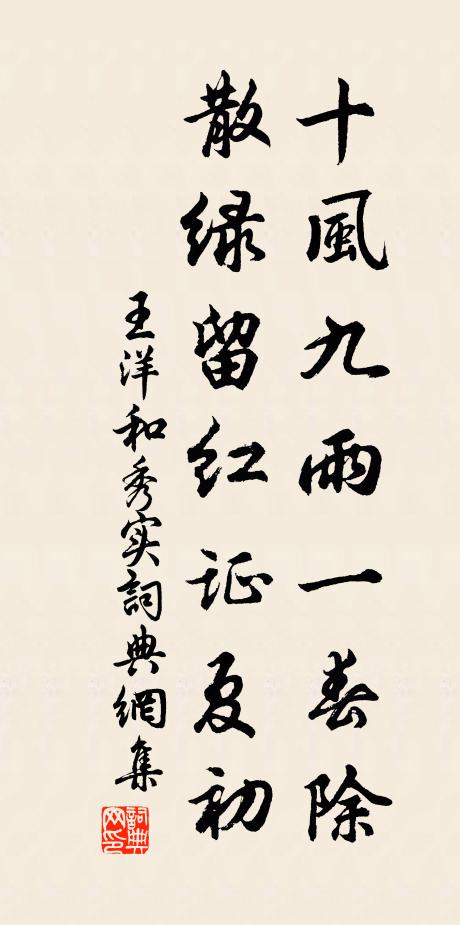 十風九雨一春除
散绿留红证夏初
王洋和秀实詞典網集
詞典
网印